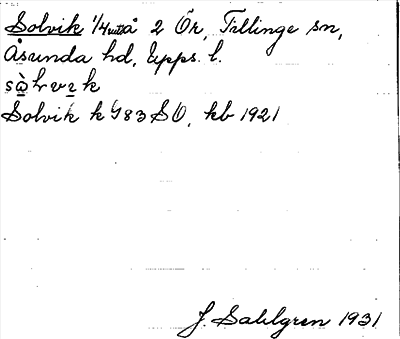 Solvik 1/4 mtl å 2 Ör, Tillinge sn,
Åsunda hd, Upps. l.
Solvik k 483 SO, kb 1921
J. Sahlgren 1931